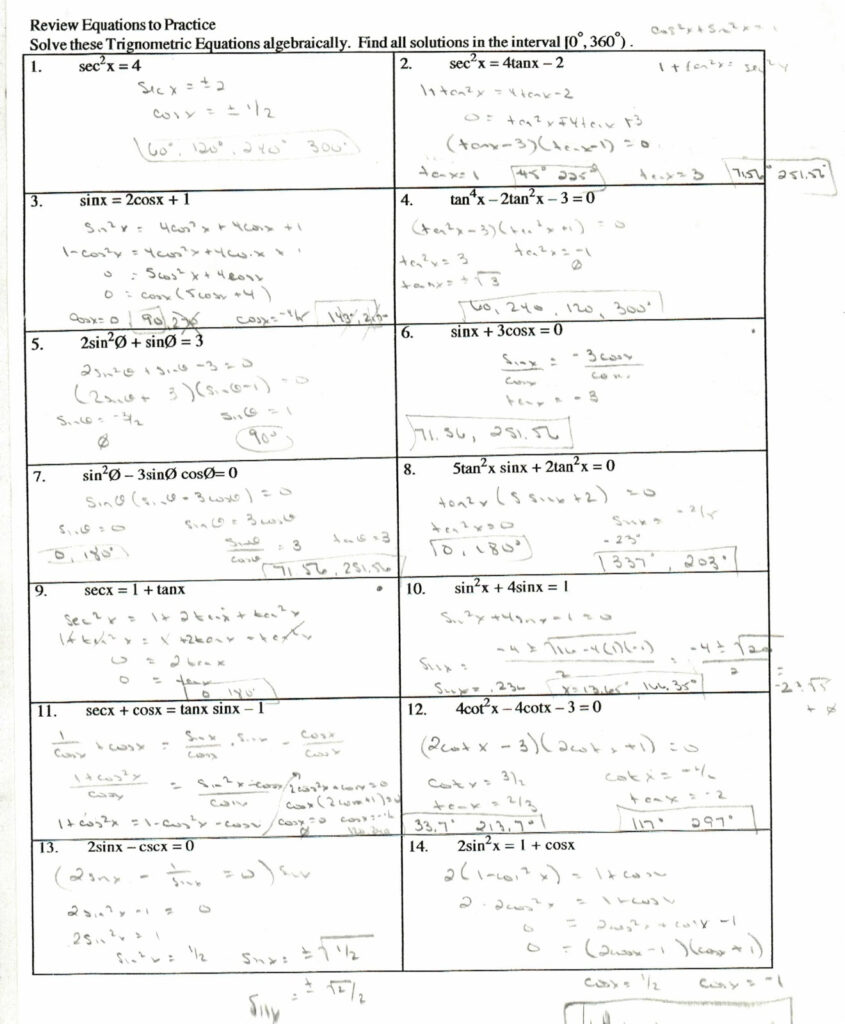 Review Equations to Practice
cos²x + sin²x = 1
Solve these Trignometric Equations algebraically. Find all solutions in the interval [0°, 360°) .
1. sec²x = 4
sec x = ± 2
cosx = ± 1/2
60°, 120°, 240° 300°
2. sec²x = 4tanx – 2
1 + tan²x = sec²x
1 + tan²x = 4tanx - 2
0 = tan²x - 4tanx + 3
(tanx - 3)(tanx - 1) = 0
tanx = 1 45° 225° tanx = 3 71.56 251.56
3. sinx = 2cosx + 1
sin²x = 4cos²x + 4cosx + 1
1 - cos²x = 4cos²x + 4cosx + 1
0 = 5cos²x + 4cosx
0 = cosx (5cosx + 4)
cosx = 0 90, 270 cosx = -4/5
4. tan⁴x – 2tan²x – 3 = 0
(tan²x - 3)(tan²x + 1) = 0
tan²x = 3 tan²x = -1
tanx = ± √3 ∅
60, 240, 120, 300°
5. 2sin²Ø + sinØ = 3
2sin²θ + sinθ - 3 = 0
(2sinθ + 3)(sinθ - 1) = 0
sinθ = -3/2 sinθ = 1
∅ 90°
6. sinx + 3cosx = 0
sinx/cosx = -3cosx/cosx
tanx = -3
71.56, 251.56
7. sin²Ø – 3sinØ cosØ= 0
sinθ (sinθ - 3cosθ) = 0
sinθ = 0 sinθ = 3cosθ
0, 180° sinθ/cosθ = 3 tanθ = 3
71.56, 251.56
8. 5tan²x sinx + 2tan²x = 0
tan²x (5sinx + 2) = 0
tan²x = 0 sinx = -2/5
-23°
0, 180° 337°, 203°
9. secx = 1 + tanx
sec²x = 1 + 2tanx + tan²x
1 + tan²x = 1 + 2tanx + tan²x
0 = 2tanx
0 = tanx
0 180°
10. sin²x + 4sinx = 1
sin²x + 4sinx - 1 = 0
sinx = -4 ± √16 - 4(1)(-1) / 2 = -4 ± √20 / 2 = -2 ± √5
sinx = .236 x = 13.65°, 166.35° + ∅
11. secx + cosx = tanx sinx – 1
1/cosx + cosx = sinx/cosx · sinx - cosx/cosx
1 + cos²x / cosx = sin²x - cosx / cosx
1 + cos²x = 1 - cos²x - cosx
2cos²x + cosx = 0
cosx (2cosx + 1) = 0
cosx = 0 cosx = -1/2
∅
12. 4cot²x – 4cotx – 3 = 0
(2cotx - 3)(2cotx + 1) = 0
cotx = 3/2 cotx = -1/2
tanx = 2/3 tanx = -2
33.7° 213.7° 117° 297°
13. 2sinx – cscx = 0
(2sinx - 1/sinx = 0) sinx
2sin²x - 1 = 0
2sin²x = 1
sin²x = 1/2 sinx = ± √1/2
sinx = ± √2/2
14. 2sin²x = 1 + cosx
2(1 - cos²x) = 1 + cosx
2 - 2cos²x = 1 + cosx
0 = 2cos²x + cosx - 1
0 = (2cosx - 1)(cosx + 1)
cosx = 1/2 cosx = -1